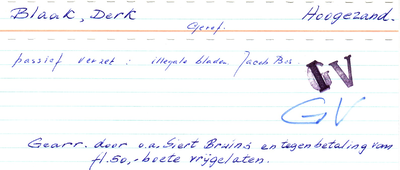 Blaak, Derk Hoogezand.
Geref.
passief verzet: illegale bladen Jacob Bos.
GV
GV
Gearr. door o.a. Siert Bruins en tegen betaling van
fl. 50,- boete vrijgelaten.